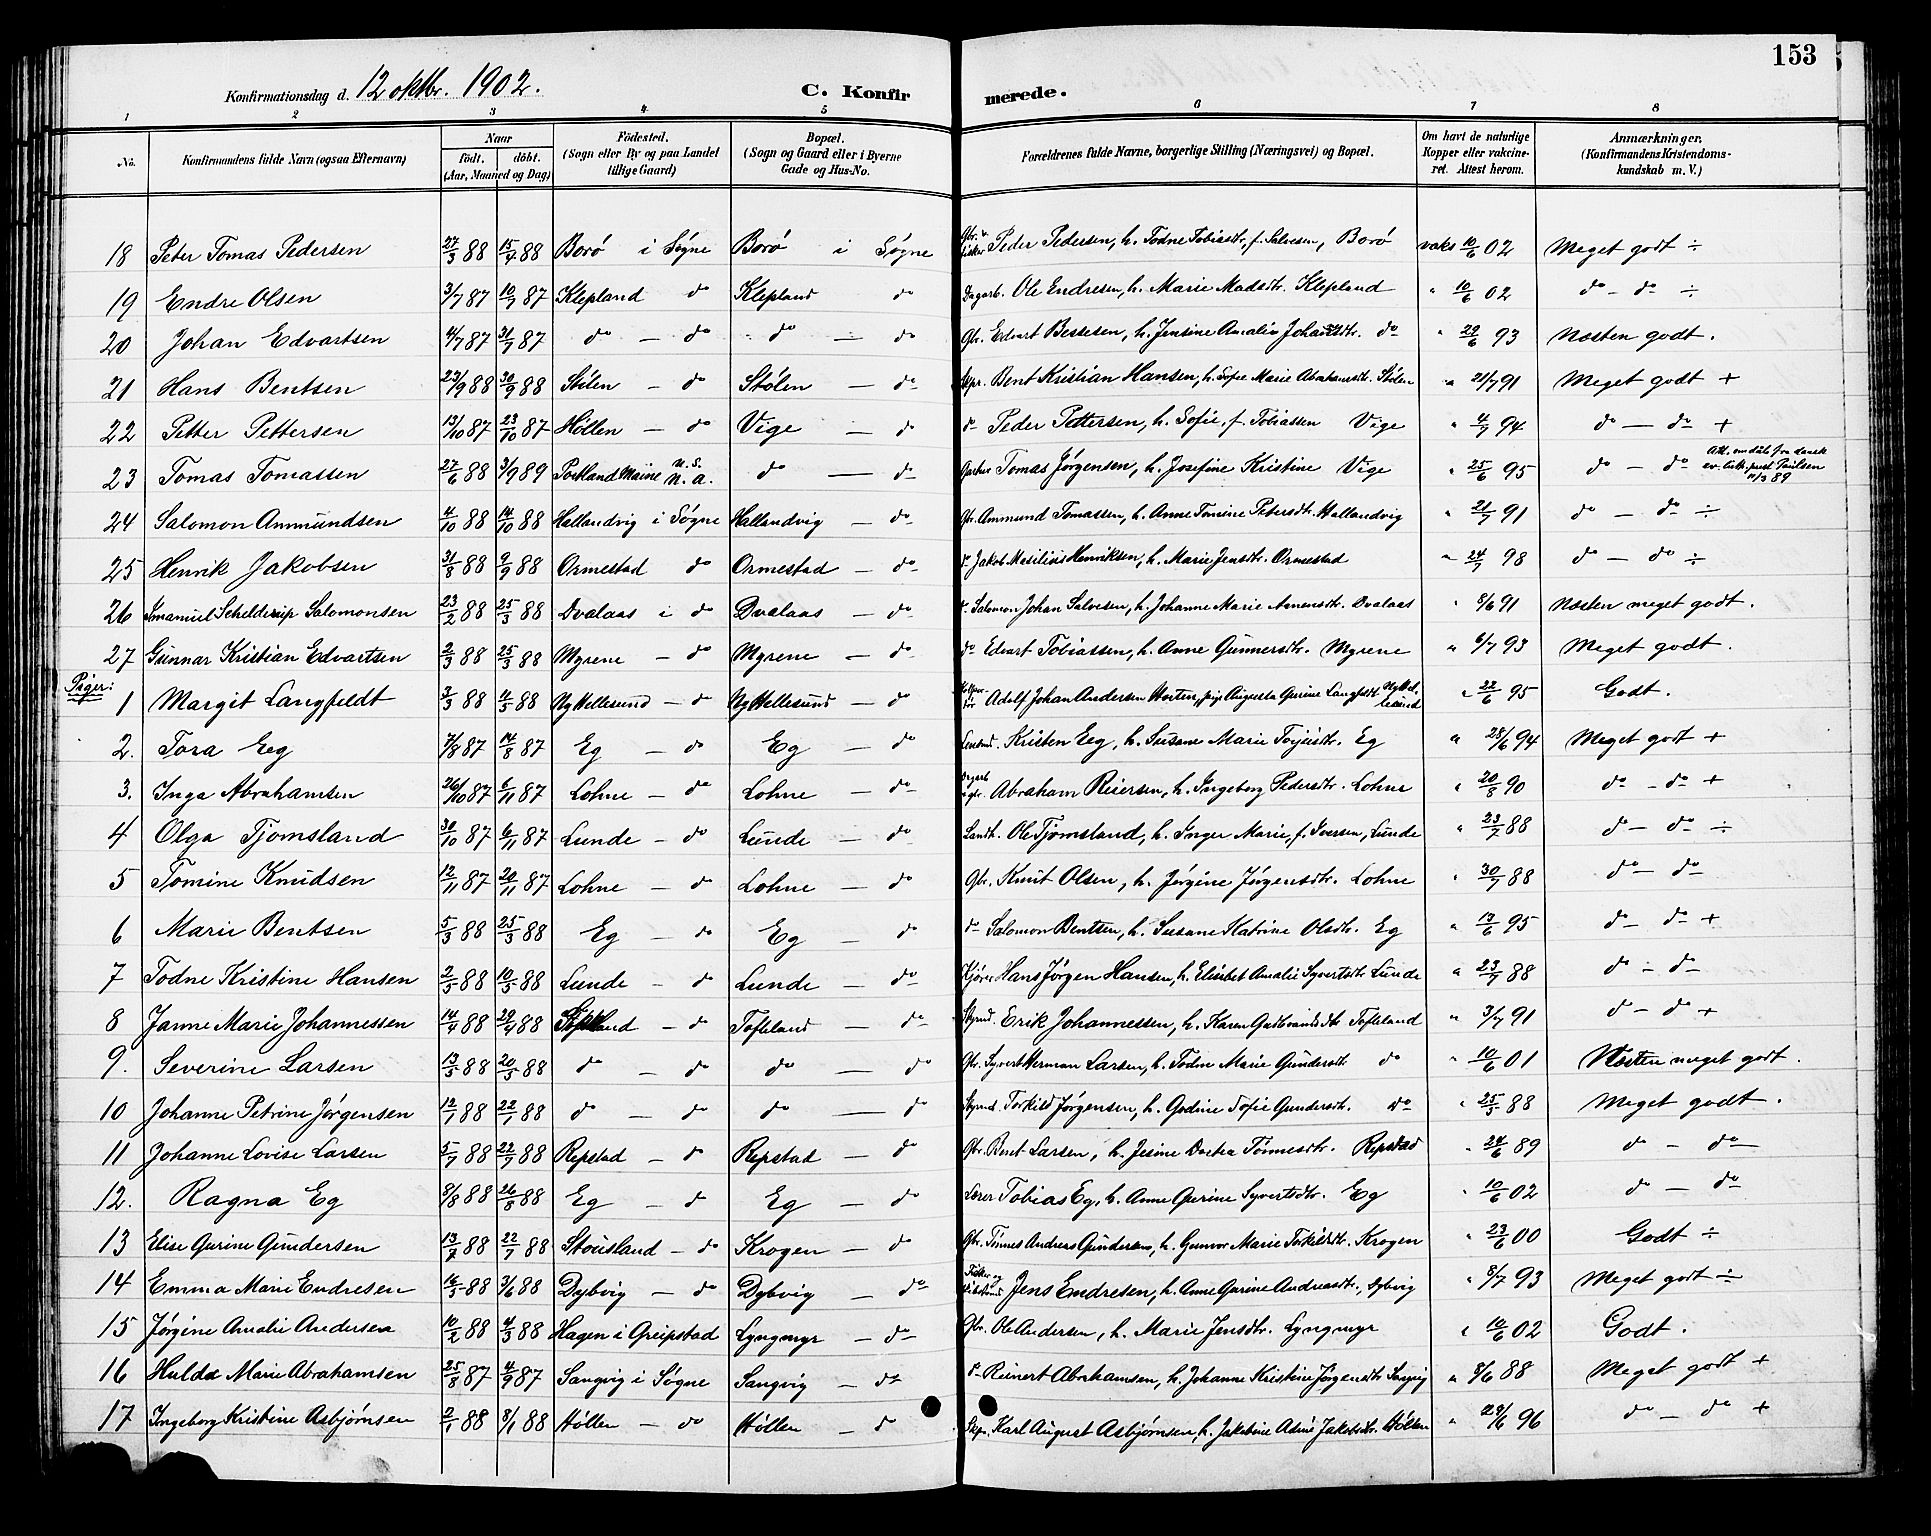 153
Konfirmationsdag d. 12 oktbr. 1902. C. Konfirmerede.
1 2 3 4 5 6 7 8
No. Konfirmandens fulde Navn (ogsaa Efternavn) Naar født. døbt. (Aar, Maaned og Dag) Fødested. (Sogn eller By og paa Landet tillige Gaard) Bopæl. (Sogn og Gaard eller i Byerne Gade og Hus-No. Forældrenes fulde Navne, borgerlige Stilling (Næringsvei) og Bopæl. Om havt de naturlige Kopper eller vakcineret. Attest herom. Anmærkninger. (Konfirmandens Kristendomskundskab m. V.)
18 Peter Tomas Pedersen 27/3 88 15/4 88 Borø i Søgne Borø i Søgne Gbr. v. fisker Peder Pedersen, h. Todne Tobiasdtr. f. Salvesen, Borø vaks 10/6 02 Meget godt ÷
19 Endre Olsen 3/7 87 10/7 87 Klepland do Klepland do Dagarb. Ole Endresen, h. Marie Madsdtr. Klepland " 10/6 02 do - do ÷
20 Johan Edvartsen 4/7 87 31/7 87 do - do do - do Gbr. Edvart Bessesen, h. Jensine Amalie Johansdtr. do " 29/6 93 Næsten godt.
21 Hans Bentsen 23/9 88 30/9 88 Stølen - do Stølen - do Skpr. Bent Kristian Hansen, h. Sofie Marie Abrahamsdtr. Stølen " 21/7 91 Meget godt +
22 Petter Pettersen 13/10 87 23/10 87 Høllen - do Vige - do do Peder Pettersen, h. Sofie, f. Tobiassen Vige " 4/7 94 do - do +
23 Tomas Tomassen 27/6 88 3/9 89 Portland Maine U.S. N.A. do - do Tomas Jørgensen, h. Josefine Kristine Vige " 25/6 95 do - do Att. om dåb fra dansk ev. luth. prest Paulsen 11/3 89
24 Salomon Ammundsen 4/10 88 14/10 88 Hallandvig i Søgne Hallandvig - do Gbr. Ammund Tomassen, h. Anne Tomine Petersdtr. Hallandvig " 21/7 91 do - do ÷
25 Henrik Jakobsen 31/8 88 9/9 88 Ormestad do Ormestad - do do Jakob Masilius Henriksen, h. Marie Jensdtr. Ormestad " 24/7 98 do - do ÷
26 Emanuel Schelderup Salomonsen 23/2 88 25/3 88 Dvalaas i do Dvalaas - do do Salomon Johan Salvesen, h. Johanne Marie Arnensdtr. Dvalaas " 8/6 91 Næsten meget godt.
27 Gunnar Kristian Edvartsen 2/3 88 25/3 88 Myrene - do Myrene - do do Edvart Tobiassen, h. Anne Gunnersdtr. Myrene " 6/7 93 Meget godt.
Piger:
1 Margit Langfeldt 3/3 88 4/5 88 Ny Hellesund - do Ny Hellesund - do Adolf Johan Andersen Morten, pige Augusta Gurine Langfeldt Ny Hellesund " 22/6 95 Godt.
2. Tora Eeg 7/8 87 14/8 87 Eg - do Eg - do Lensmd. Kristen Eeg, h. Susane Marie Torjusdtr. Eg " 28/6 94 Meget godt +
3. Inga Abrahamsen 26/10 87 6/11 87 Lohne - do Lohne - do Dagarb. v. gbr. Abraham Reiersen, h. Ingeborg Pedersdtr. Lohne " 20/8 90 do - do +
4 Olga Tjomsland 30/10 87 6/11 87 Lunde - do Lunde - do Landh. Ole Tjomsland, h. Inger Marie, f. Iversen, Lunde " 23/7 88 do - do ÷
5 Tomine Knudsen 12/11 87 20/11 87 Lohne - do Lohne - do Gbr. Knut Olsen, h. Jørgine Jørgensdtr. Lohne " 30/7 88 do - do
6 Marie Bentsen 5/3 88 25/3 88 Eg - do Eg - do do Salomon Bentsen, h. Susane Katrine Olsdtr. Eg " 13/6 95 do - do +
7 Todne Kristine Hansen 2/3 88 10/5 88 Lunde - do Lunde - do Kjører Hans Jørgen Hansen, h. Elisabet Amalie Syvertsdtr. Lunde " 23/7 88 do - do
8 Janne Marie Johannessen 14/4 88 29/4 88 Tofteland - do Tofteland - do Skpmd. Erik Johannessen, h. Karen Gudbrandsdtr Tofteland " 3/7 91 do - do +
9. Severine Larsen 13/5 88 20/5 88 do - do do - do Gbr. Syvert Herman Larsen, h. Todne Marie Gundersdtr. do " 10/6 01 Næsten meget godt.
10 Johanne Petrine Jørgensen 12/1 88 22/1 88 do - do do - do Skpmd. Torkild Jørgensen, h. Godine Tofie Gundersdtr. do " 25/5 88 Meget godt.
11 Johanne Lovise Larsen 5/7 88 22/7 88 Repstad - do Repstad - do Gbr. Bent Larsen, h. Jesine Dortea Tønnesdtr. Repstad " 24/6 89 do - do
12. Ragna Eg 8/8 88 26/8 88 Eg - do Eg - do Lærer Tobias Eg, h. Anne Gurine Syvertsdtr. Eg " 10/6 02 do - do
13 Elise Gurine Gundersen 13/7 88 22/7 88 Stousland - do Krogen - do Gbr. Tønnes Andreas Gundersen, h. Gunvor Marie Torkildsdtr. Krogen " 23/6 00 Godt ÷
14 Emma Marie Endresen 16/5 88 3/6 88 Dybvig - do Dybvig - do Fisker og Jens Endresen, h. Anne Gurine Andreasdtr., Dybvig " 8/7 93 Meget godt ÷
15 Jørgine Amalie Andersen 10/2 88 4/3 88 Hagen i Greipstad Lyngmyr - do Gbr. Ole Andersen, h. Marie Jensdtr. Lyngmyr " 10/6 02 Godt.
16 Hulda Marie Abrahamsen 25/8 87 4/9 87 Sangvig i Søgne Sangvig - do do Reinert Abrahamsen, h. Johanne Kristine Jørgensdtr. Sangvig " 8/6 88 Meget godt +
17 Ingeborg Kristine Asbjørnsen 2/1 88 8/1 88 Høllen - do Høllen - do Skpr. Karl August Asbjørnsen, h. Jakobine Adine Jakobsdtr. Høllen " 29/6 96 do - do +